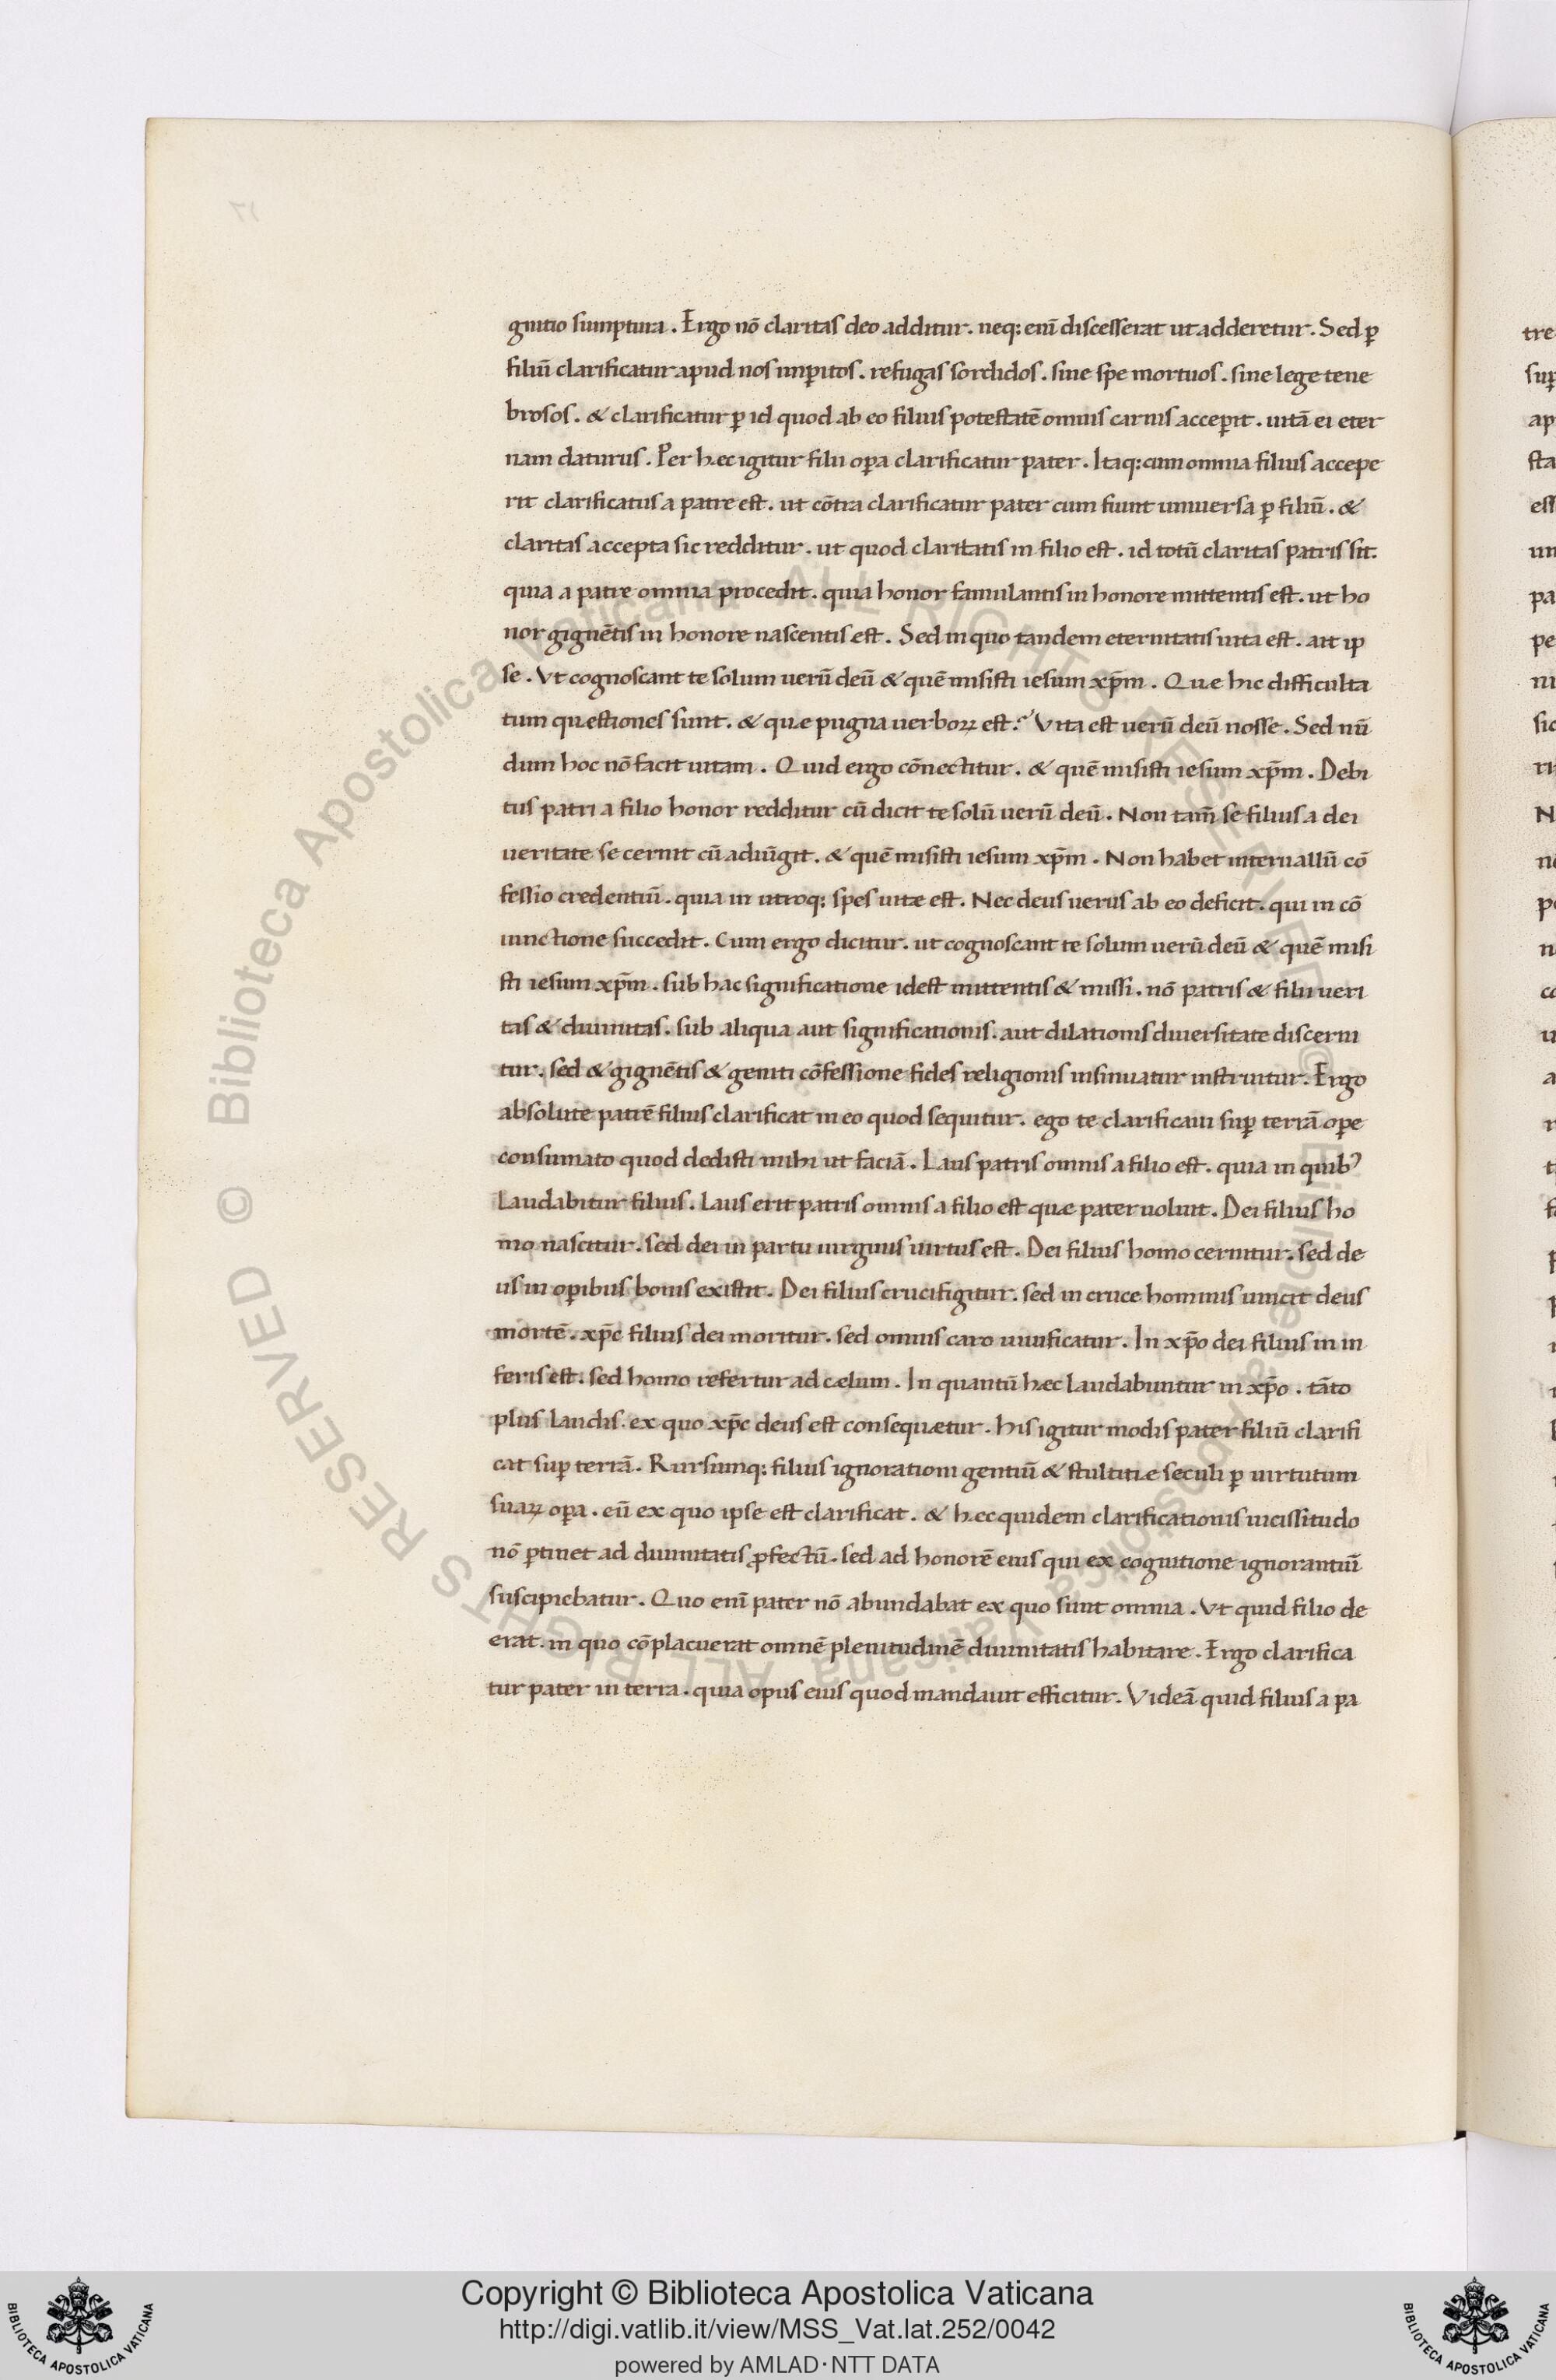 gnitio sumptura . Ergo nō claritas deo additur . neq; eni̅ discesserat ut adderetur . Sed ꝑ
filiū clarificatur apud nos imꝑitos . refugas sordidos . sine spe mortuos . sine lege tene
brosos . & clarificatur ꝑ id quod ab eo filius potestatē omnis carnis acceꝑit . uitā ei eter
nam daturus . Per hęc igitur filii oꝑa clarificatur pater . Itaq; cum omnia filius accepe
rit clarificatus a patre est . ut cōtra clarificatur pater cum fiunt uniuersa ꝑ filiū . &
claritas accepta sic redditur . ut quod claritatis in filio est . id totū claritas patris sit.
quia a patre omnia procedit . quia honor famulantis in honore mittentis est . ut ho
nor gignētis in honore nascentis est . Sed in quo tandem eternitatis uita est . ait ip
se . Vt cognoscant te solum uerū deū & quē misisti iesum xp̄m . Que hic difficulta
tum quęstiones sunt . & quę pugna uerboꝝ est ? Vita est uerū deū nosse . Sed nū
dum hoc nō facit uitam . Quid ergo cōnectitur . & quē misisti iesum xp̄m . Debi
tus patri a filio honor redditur cū dicit te solū uerū deū . Non tam̄ se filius a dei
ueritate se cernit cū adiūgit . & quē misisti iesum xp̄m . Non habet interuallū cō
fessio credentiū . quia in utroq; spes uitæ est . Nec deus uerus ab eo deficit . qui in cō
iunctione succedit . Cum ergo dicitur . ut cognoscant te solum uerū deū & quē misi
sti iesum xp̄m . sub hac significatione idest mittentis & missi . nō patris & filii ueri
tas & diuinitas . sub aliqua aut significationis . aut dilationis diuersitate discerni
tur . sed & gignētis & geniti cōfessione fides religionis insinuatur instruitur . Ergo
absolute patrē filius clarificat in eo quod sequitur . ego te clarificaui suꝑ terrā oꝑe
consumato quod dedisti mihi ut faciā . Laus patris omnis a filio est . quia in quibꝰ
laudabitur filius . laus erit patris omnis a filio est quæ pater uoluit . Dei filius ho
mo nascitur . sed dei in partu uirginis uirtus est . Dei filius homo cernitur . sed de
us in oꝑibus bonis existit . Dei filius crucifigitur . sed in cruce hominis uincit deus
mortē . xp̄c filius dei moritur . sed omnis caro uiuificatur . In xp̄o dei filius in in
feris est . sed homo refertur ad cælum . In quantū hæc laudabuntur in xp̄o . tāto
plus laudis . ex quo xp̄c deus est consequætur . his igitur modis pater filiū clarifi
cat suꝑ terrā . Rursumq; filius ignorationi gentiū & stultitiæ seculi ꝑ uirtutum
suaꝝ oꝑa . eū ex quo ipse est clarificat . & hęc quidem clarificationis uicissitudo
nō ꝑtinet ad diuinitatis ꝓfectū . sed ad honorē eius qui ex cognitione ignorantiū
suscipiebatur . Quo eni̅ pater nō abundabat ex quo sunt omnia . Vt quid filio de
erat . in quo cōplacuerat omnē plenitudinē diuinitatis habitare . Ergo clarifica
tur pater in terra . quia opus eius quod mandauit efficitur . Videā quid filius a pa
© Biblioteca Apostolica Vaticana ALL RIGHTS RESERVED
Copyright © Biblioteca Apostolica Vaticana
http://digi.vatlib.it/view/MSS_Vat.lat.252/0042
powered by AMLAD·NTT DATA
BIBLIOTECA APOSTOLICA VATICANA
BIBLIOTECA APOSTOLICA VATICANA